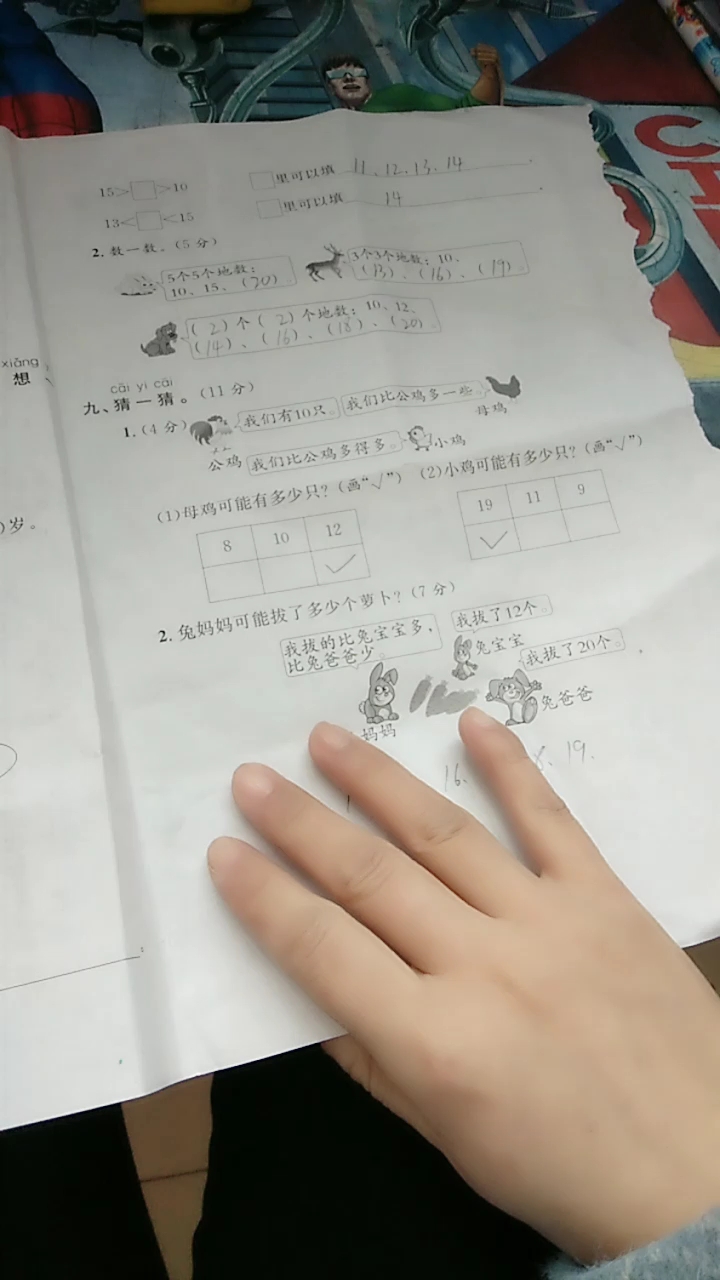 15>□>10 □里可以填 11、12、13、14
13<□<15 □里可以填 14
2. 数一数。(5分)
5个5个地数：
10、15、(20)
3个3个地数：10、
(13)、(16)、(19)
(2)个(2)个地数：10、12、
(14)、(16)、(18)、(20)
xiǎng
想
cāi yi cāi
九、猜一猜。(11分)
1.(4分)
我们有10只。
我们比公鸡多一些。
母鸡
公鸡
我们比公鸡多得多。
小鸡
(1)母鸡可能有多少只？(画“√”)
(2)小鸡可能有多少只？(画“√”)
8 10 12
√
19 11 9
√
)岁。
2. 兔妈妈可能拔了多少个萝卜？(7分)
我拔的比兔宝宝多，
比兔爸爸少。
我拔了12个。
兔宝宝
我拔了20个。
兔爸爸
妈妈
16、 19.